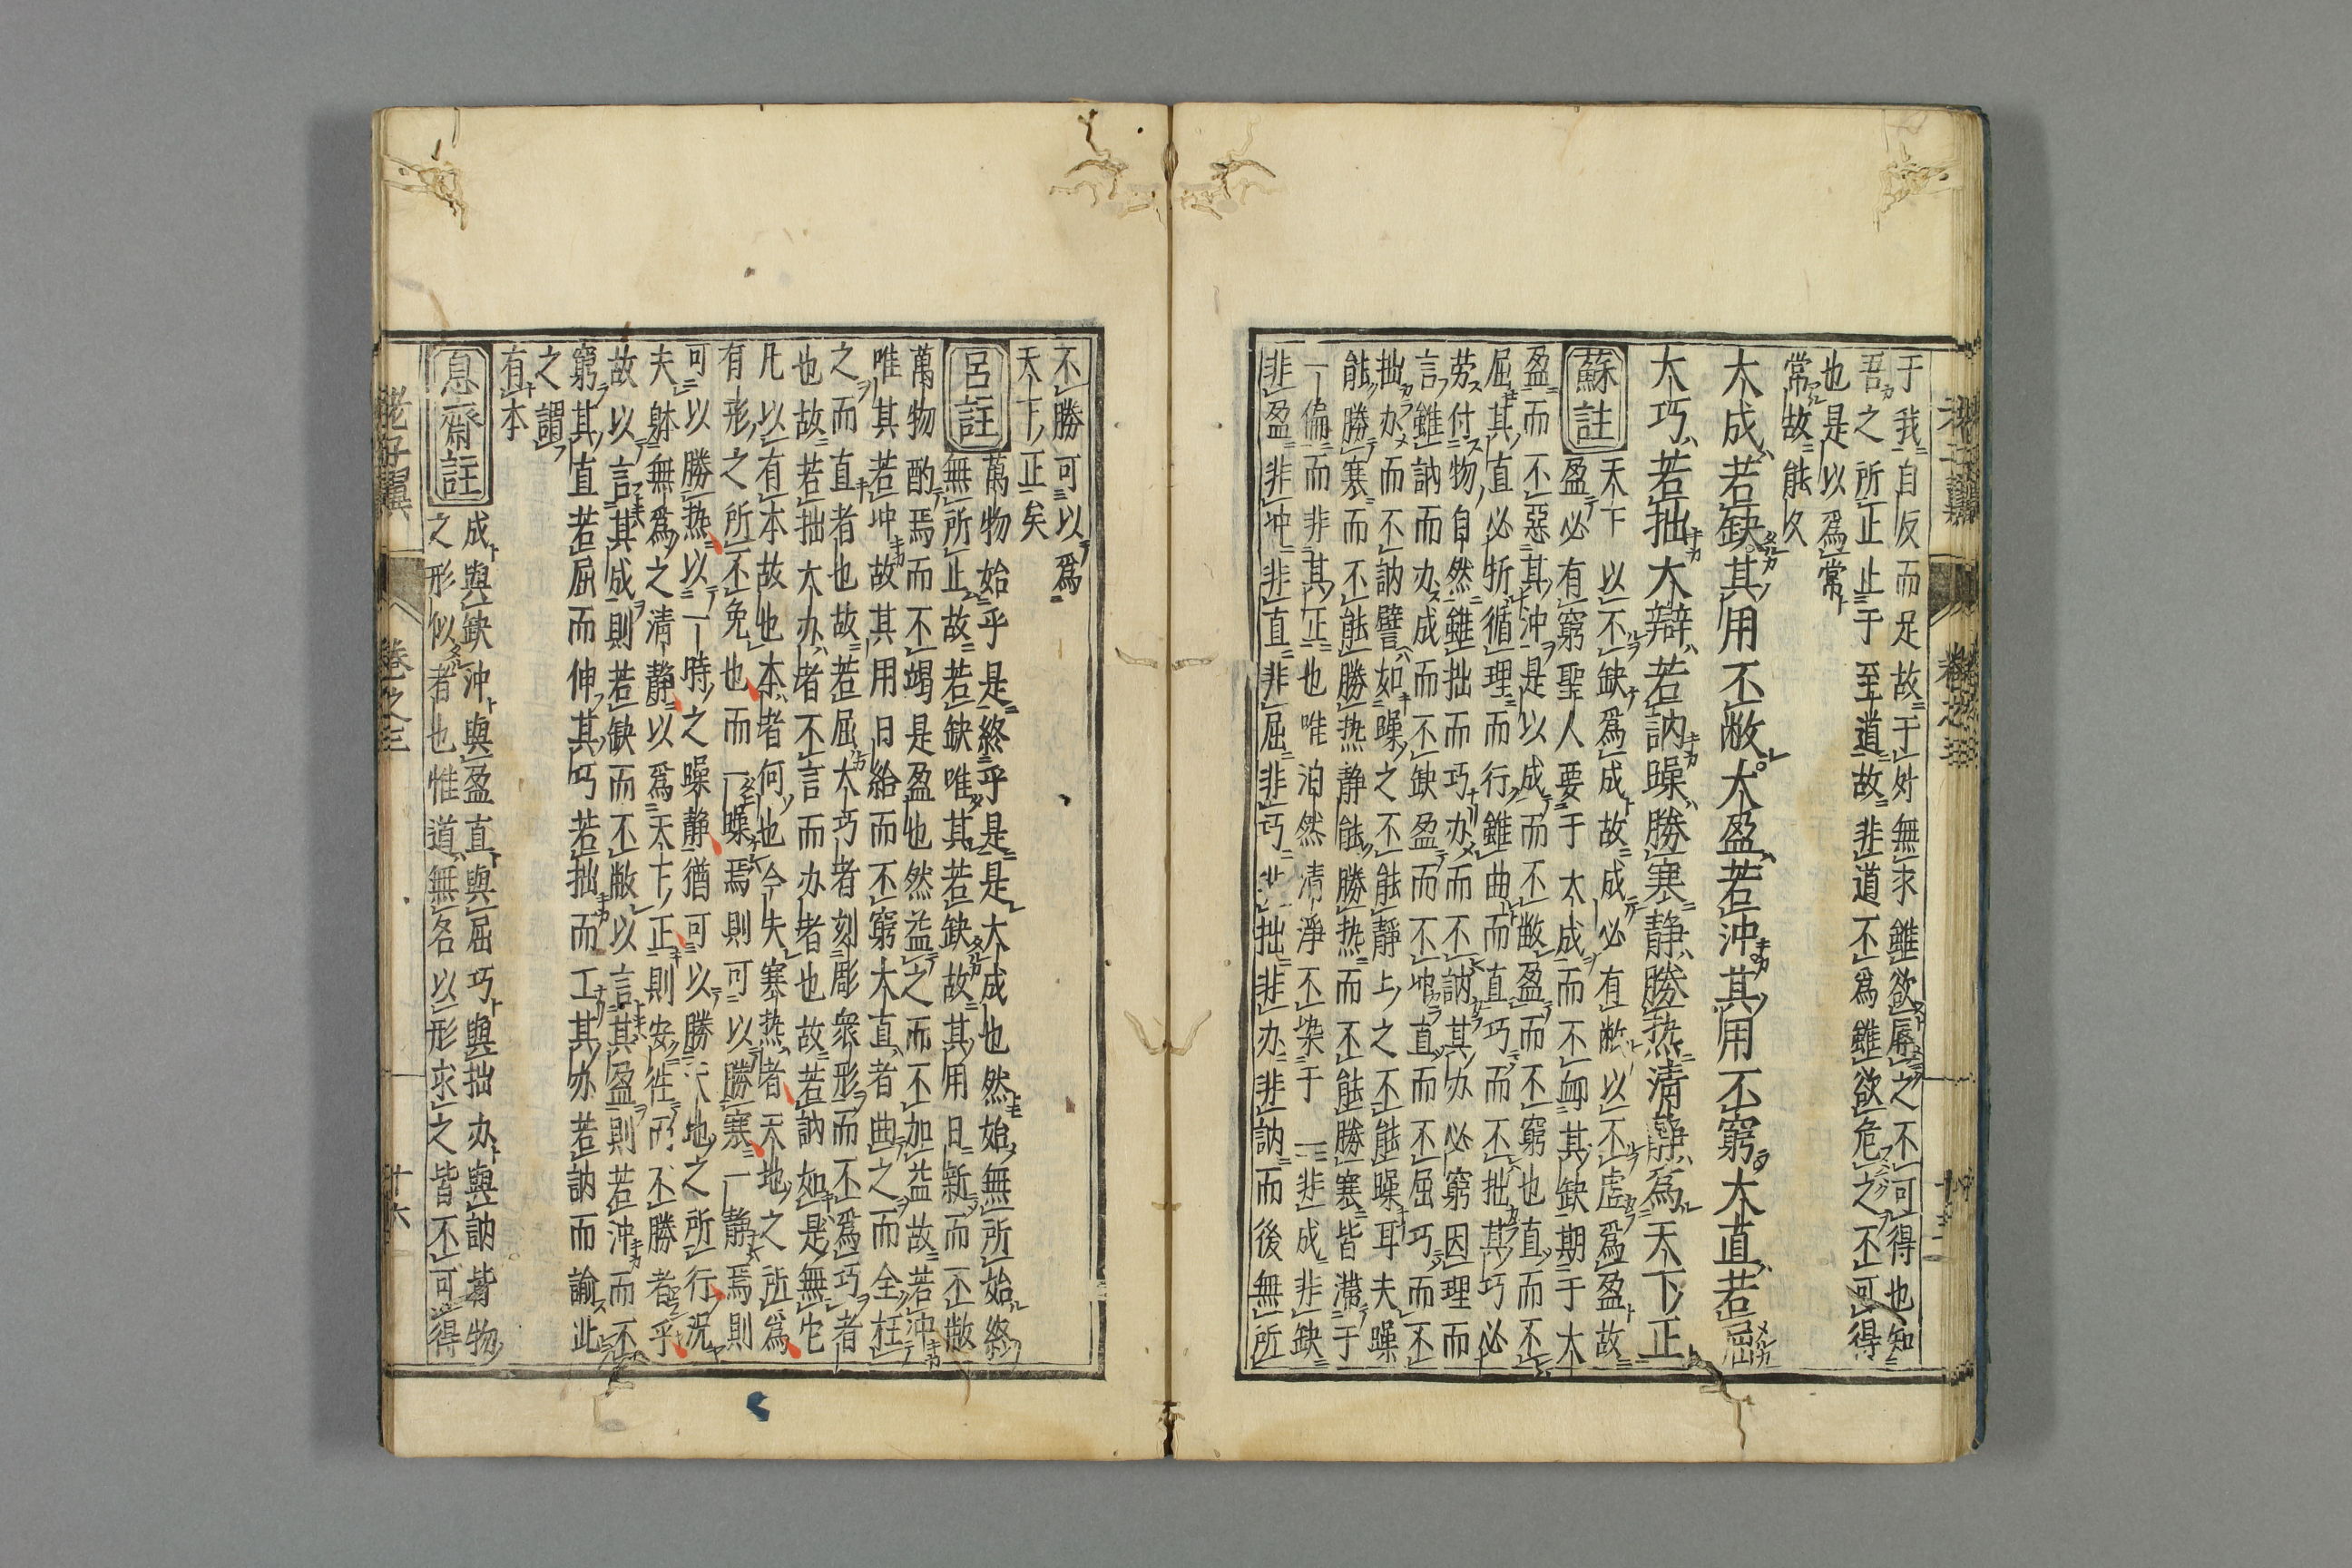 于我自反而足故于外無求雖欲辱之不可得也知
吾之所止止于至道故非道不爲雖欲危之不可得
也是以爲常
常故能久
大成若缺其用不敝大盈若沖其用不窮大直若屈
大巧若拙大辯若訥躁勝寒静勝热清静爲天下正
蘇註
天下以不缺爲成故成必有敝以不虚爲盈故
盈必有窮聖人要于大成而不䘏其缺期于大
盈而不惡其沖是以成而不敝盈而不窮也直而不
屈其直必折循理而行雖曲而直巧而不拙其巧必
劳付物自然雖拙而巧办而不訥其办必窮因理而
言雖訥而办成而不缺盈而不冲直而不屈巧而不
拙办而不訥譬如躁之不能靜上之不能躁耳夫躁
能勝寒而不能勝热静能勝热而不能勝寒皆滯于
一偏而非其正也唯泊然清淨不染于一非成非缺
非盈非冲非直非屈非巧非拙非办非訥而後無所
不勝可以爲
天下正矣
呂註
萬物始乎是終乎是是大成也然始無所始終
無所止故若缺唯其若缺故其用日新而不敝
萬物酌焉而不竭是盈也然益之而不加益故若沖
唯其若冲故其用日給而不窮大直者曲之而全枉
之而直者也故若屈大巧者刻彫衆形而不爲巧者
也故若拙大办者不言而办者也故若訥如是無它
凡以有本故也本者何也今失寒热者天地之所爲
有形之所不免也而一躁焉則可以勝寒一静焉則
可以勝热以一時之躁静猶可以勝天地之所行况
夫躰無爲之清静以爲天下正則安徃而不勝者乎
故以言其成則若缺而不敝以言其盈則若沖而不
窮其直若屈而伸其巧若拙而工其办若訥而諭此
之謂
有本
息齋註
成與缺沖與盈直與屈巧與拙办與訥皆物
之形似者也惟道無名以形求之皆不可得
老子翼
卷之三
十六